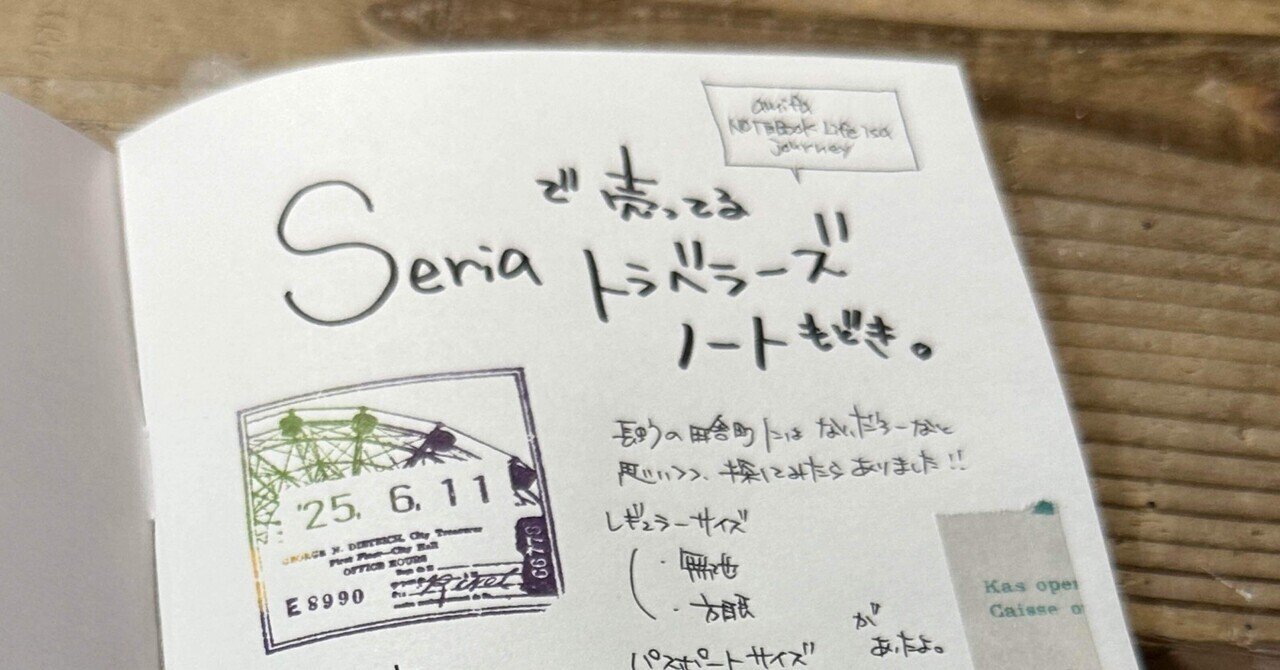 NOTEBOOK Life is a
journey
Seria で売ってる
トラベラーズ
ノートもどき。
'25. 6. 11
GEORGE N. DIETRICH, City Treasurer
First Floor—City Hall
OFFICE HOURS
E 8990
C6778
長野の田舎町にはないだろーなと
思いつつ、探してみたらありました!!
レギュラーサイズ
・無地
・方眼
パスポートサイズ
が
あったよ。
Kas open
Caisse o